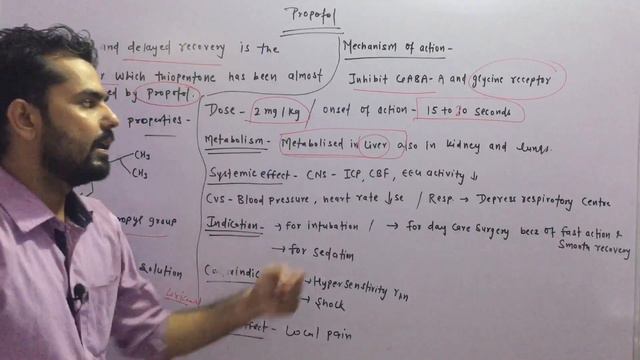 Propofol
and delayed recovery is the
which thiopentone has been almost
ed by Propofol.
properties -
CH3
CH3
opyl group
solution
Mechanism of action -
Inhibit GABA-A and glycine receptor
Dose - 2 mg/kg / onset of action - 15 to 30 seconds
Metabolism - Metabolised in Liver also in kidney and lungs.
Systemic effect - CNS - ICP, CBF, EEG activity ↓
CVS - Blood pressure, heart rate ↓se / Resp. → Depress respirotory centre
Indication - → for intubation / → for day care surgery becz of fast action &
smooth recovery
→ for sedation
→ Hypersensitivity rxn
→ shock
ffect - Local pain